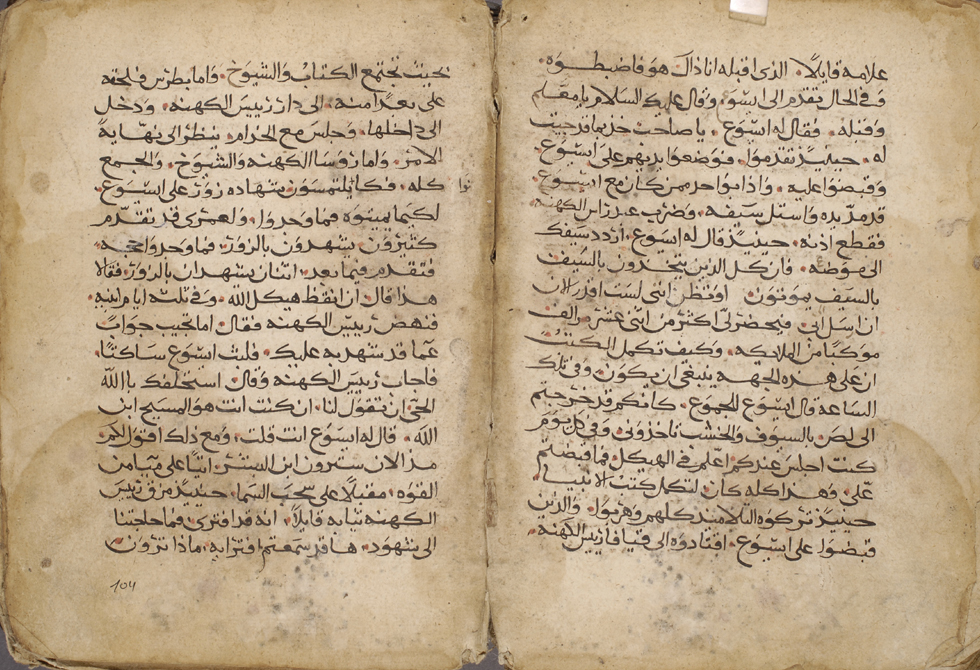 علامه قايلاً الذي اقبله انا ذاك هو فاضبطوه
وفي الحال تقدم الى ايسوع وقال عليك السلام يا معلم
وقبله فقال له ايسوع يا صاحب خذ بما قد جيت
له حينيذ تقدموا فوضعوا يديهم على ايسوع
وقبضوا عليه واذا بواحد ممن كان مع ايسوع
قد مد يده واستل سيفه وضرب عبد راس الكهنه
فقطع اذنه حينيذ قال له ايسوع اردد سيفك
الى موضعه فان كل الذين يتخذون بالسيف
بالسيف يموتون اوتظن انني لست اقدر الان
ان اسل ابي فيحضر لي اكثر من اثني عشر الف
موكبًا من الملايكه وكيف تكمل الكتب
ان على هذه الجهه ينبغي ان يكون وفي تلك
الساعه قال ايسوع للجموع كانكم قد خرجتم
الى لص بالسيوف والخشب تاخذوني وفي كل يوم
كنت اجلس عندكم اعلم في الهيكل فما قبضتم
علي وهذا كله كان لتكمل كتب الانبيا
حينيذ تركوه التلاميذ كلهم وهربوا والذين
قبضوا على ايسوع اقتادوه الى قيافا رييس الكهنه
بحيث تجتمع الكتاب والشيوخ واما بطرس فلحقه
على بعد امنه الى دار رييس الكهنه ودخل
الى داخلها وجلس مع الخدام ينظر الى نهاية
الامر واما روسا الكهنه والشيوخ والجمع
كله فكانوا يلتمسون شهاده زور على ايسوع
لكيما يميتوه فما وجدوا ولعمري قد تقدم
كثيرون يشهدون بالزور فما وجدوا حجه
فتقدم فيما بعد اثنان يشهدان بالزور فقالا
هذا قال ان انقط هيكل الله وفي ثلثه ايام ابنيه
فنهض رييس الكهنه فقال اما تجيب جوابًا
عما قد شهد به عليك فلبث ايسوع ساكتًا
فاجاب رييس الكهنه وقال استحلفك بالله
الحي ان تقول لنا ان كنت انت هو المسيح ابن
الله قال له ايسوع انت قلت ومع ذلك اقول لكم
مذ الان سترون ابن البشر اتيًا على ميامن
القوه مقبلًا على سحب السما حينيذ مزق رييس
الكهنه ثيابه قايلاً انه قد افترى فما حاجتنا
الى شهود ها قد سمعتم افترايه ماذا ترون
104